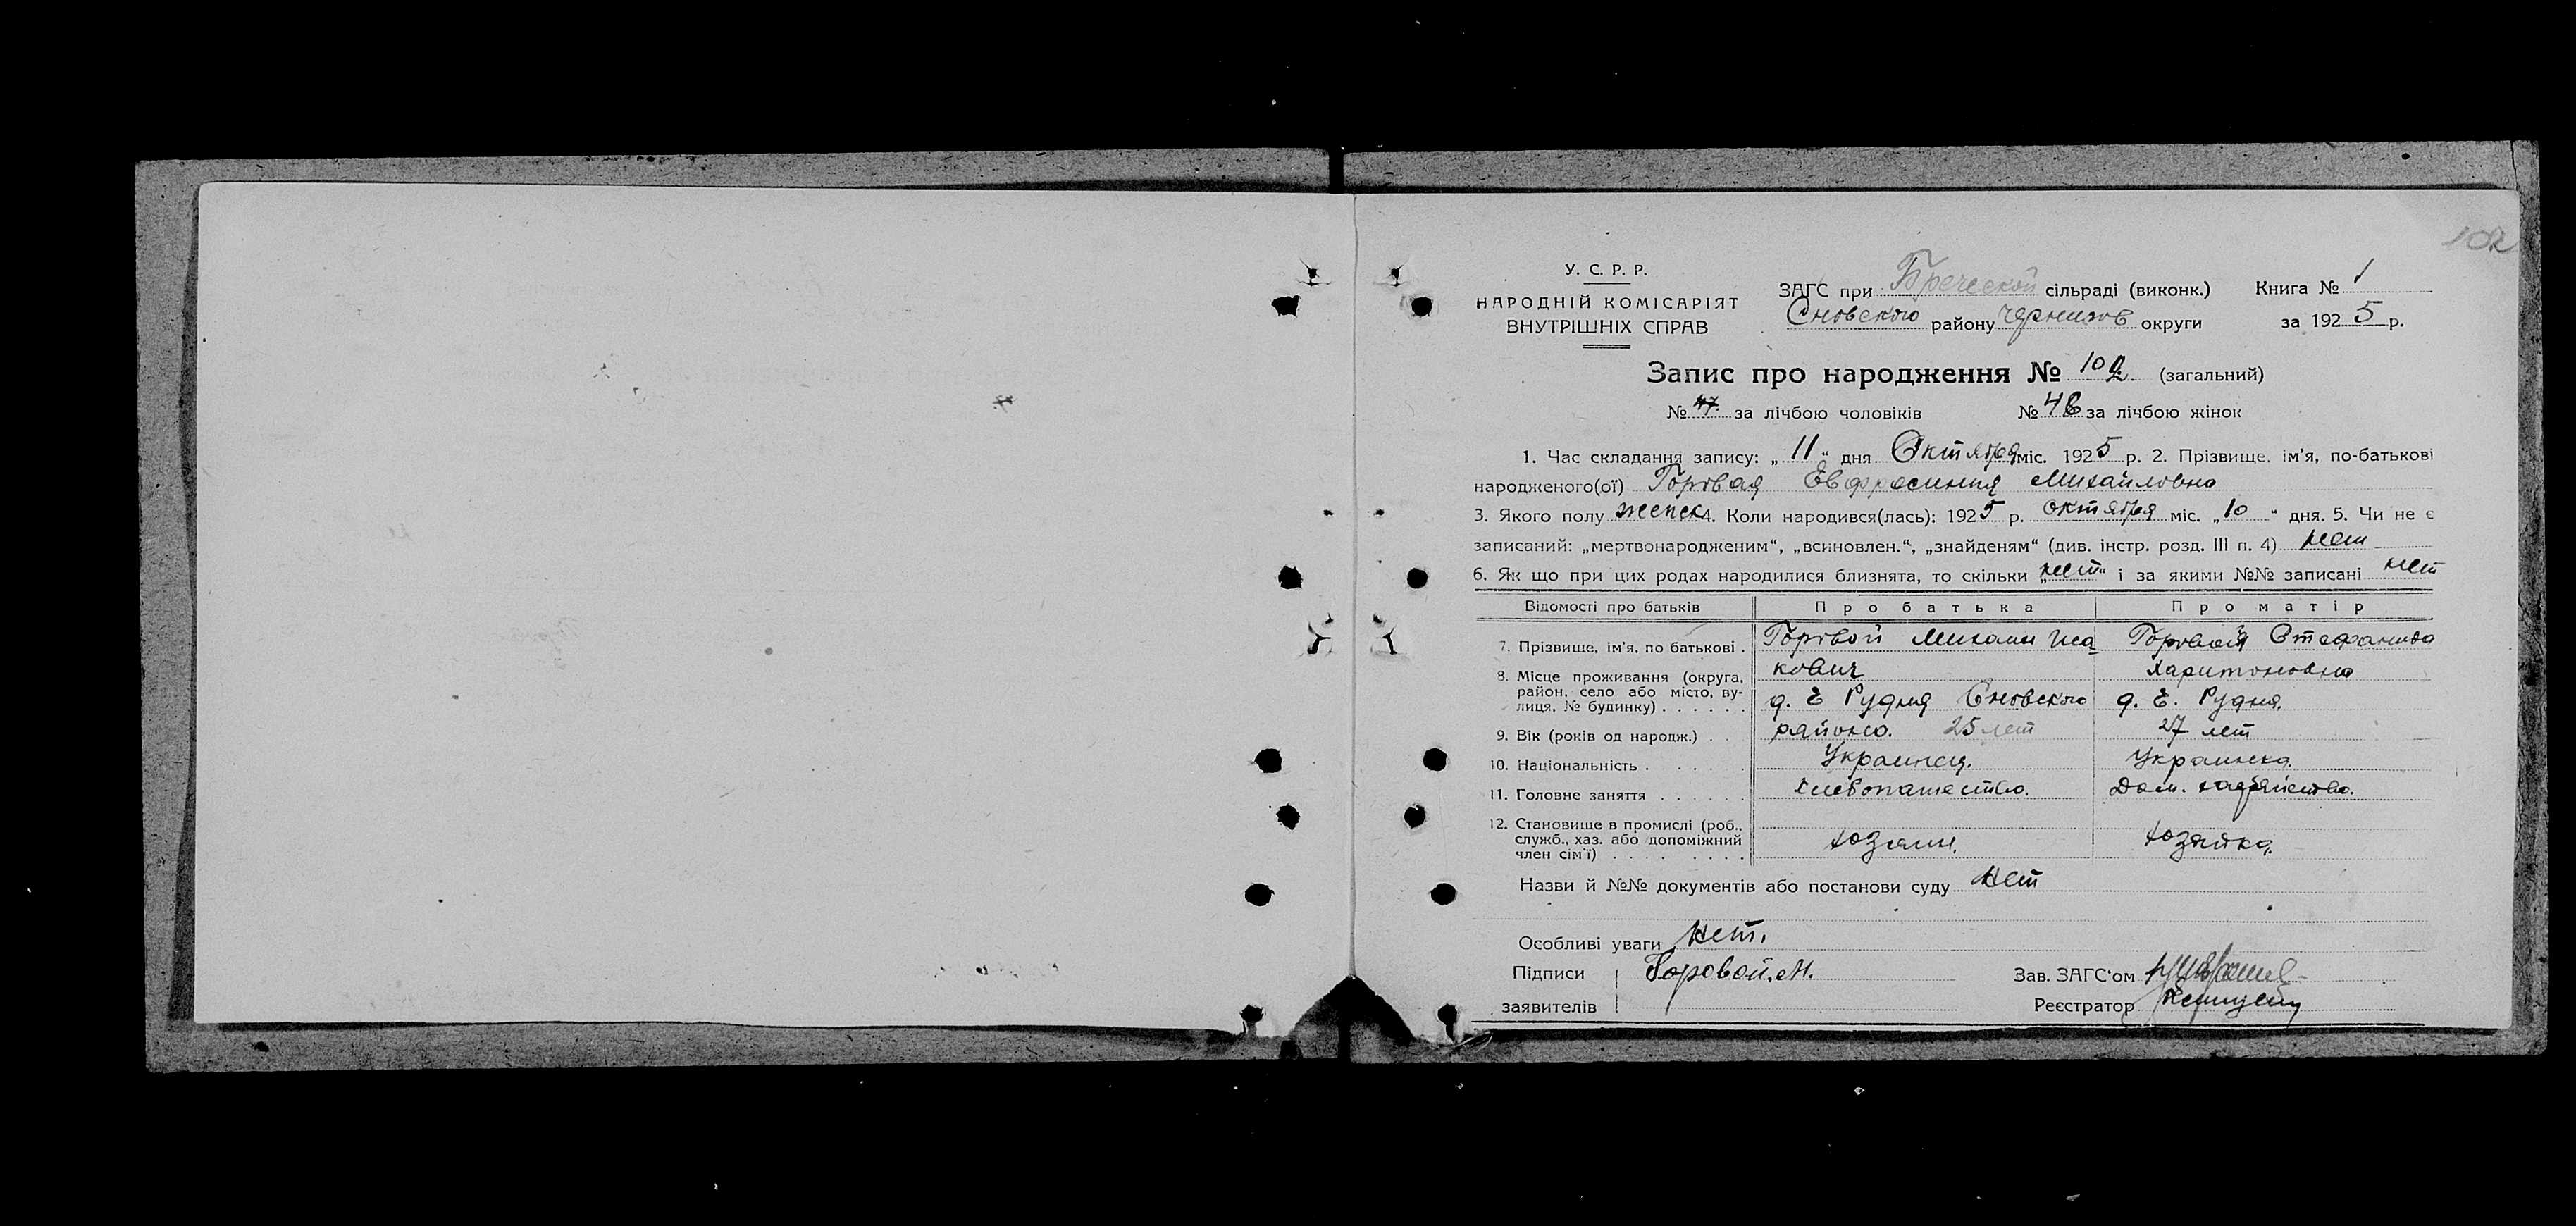 102
У. С. Р. Р.
НАРОДНІЙ КОМІСАРІЯТ
ВНУТРІШНІХ СПРАВ
ЗАГС при Бреческой сільраді (виконк.) Книга № 1
Сновского району Чернигов округи за 1925 р.
Запис про народження № 102 (загальний)
№ 47 за лічбою чоловіків № 48 за лічбою жінок
1. Час складання запису: „11“ дня Октября міс. 1925 р. 2. Прізвище, ім'я, по-батькові
народженого(ої) Горовая Евфросиния Михайловна
3. Якого полу женск 4. Коли народився(лась): 1925 р. октября міс. „10“ дня. 5. Чи не є
записаний: „мертвонародженим“, „всиновлен.“, „знайденям“ (див. інстр. розд. III п. 4) нет
6. Як що при цих родах народилися близнята, то скільки „нет“ і за якими №№ записані нет
Відомості про батьків Про батька Про матір
7. Прізвище, ім'я, по батькові . Горовой Михаил Иса- Горовая Стефанида
кович Харитоновна
8. Місце проживання (округа,
район, село або місто, ву-
лиця, № будинку) . . . . . . д. Е Рудня Сновского д. Е. Рудня.
9. Вік (років од народж.) . . района. 25 лет 27 лет
10. Національність . . . . . . Украинец. Украинка.
11. Головне заняття . . . . . . Хлебопашество. Дом. хозяйство.
12. Становище в промислі (роб.,
служб., хаз. або допоміжний
член сім'ї) . . . . . . . . . хозяин. хозяйка.
Назви й №№ документів або постанови суду нет
Особливі уваги нет.
Підписи Горовой. М. Зав. ЗАГС'ом
заявителів Реєстратор